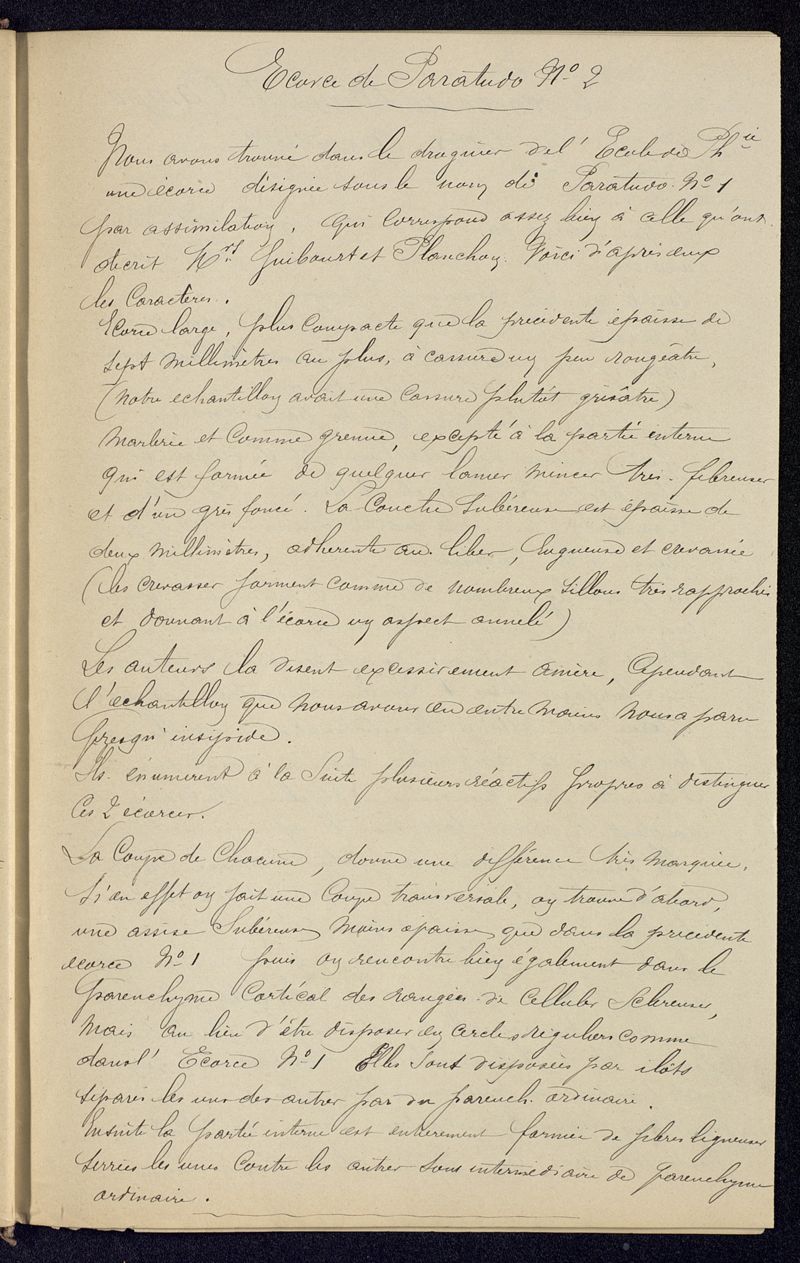 Ecorce de Paratudo Nº 2
Nous avons trouvé dans le droguier de l'Ecole de Phie
une écorce désignée sous le nom de Paratudo Nº 1
par assimilation, qui correspond assez bien à celle qu'ont
decrit Mrs Guibourt et Planchon. Voici d'après eux
les Caractères.
Ecorce large, plus compacte que la précédente épaisse de
sept millimètres au plus, à cassure un peu rougeâtre,
(notre echantillon avait une cassure plutôt grisâtre)
marbrée et comme grenue, excepté à la partie interne
qui est formée de quelques lames minces très-fibreuses
et d'un gris foncé. La Couche Subéreuse est épaisse de
deux millimètres, adhérente au liber, rugueuse et crevassée
(les crevasses forment comme de nombreux sillons très rapprochés
et donnant à l'écorce un aspect annelé)
Les auteurs la disent excessivement amère, Cependant
l'echantillon que nous avons eu entre mains nous a paru
presqu'insipide.
Ils énumèrent à la Suite plusieurs réactifs propres à distinguer
Ces 2 écorces.
La Coupe de Chacune, donne une différence très marquée.
Si en effet on fait une Coupe transversale, on trouve d'abord,
une assise Subéreuse moins épaisse que dans la précédente
écorce Nº 1 puis on rencontre bien également dans le
parenchyme Cortical des rangées de Cellules Scléreuses,
mais au lieu d'être disposées en cercles réguliers comme
dans l'Ecorce Nº 1 Elles sont disposées par ilôts
séparés les uns des autres par du parench. ordinaire.
Ensuite la partie interne est entièrement formée de fibres ligneuses
serrées les unes Contre les autres sans intermédiaire de parenchyme
ordinaire.